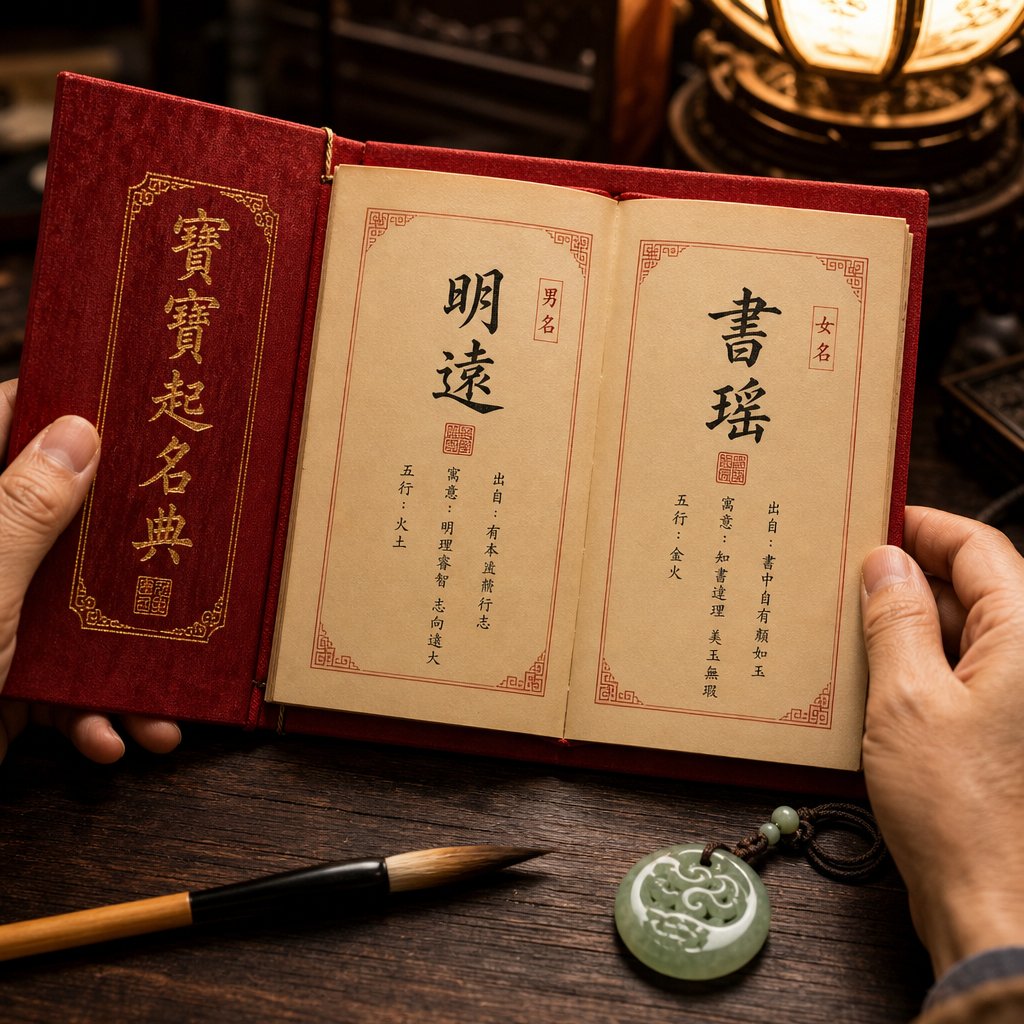 寶寶起名典
男名
明遠
出自：有本行志
寓意：明理睿智 志向遠大
五行：火土
女名
書瑶
出自：書中自有顏如玉
寓意：知書達理 美玉無瑕
五行：金火